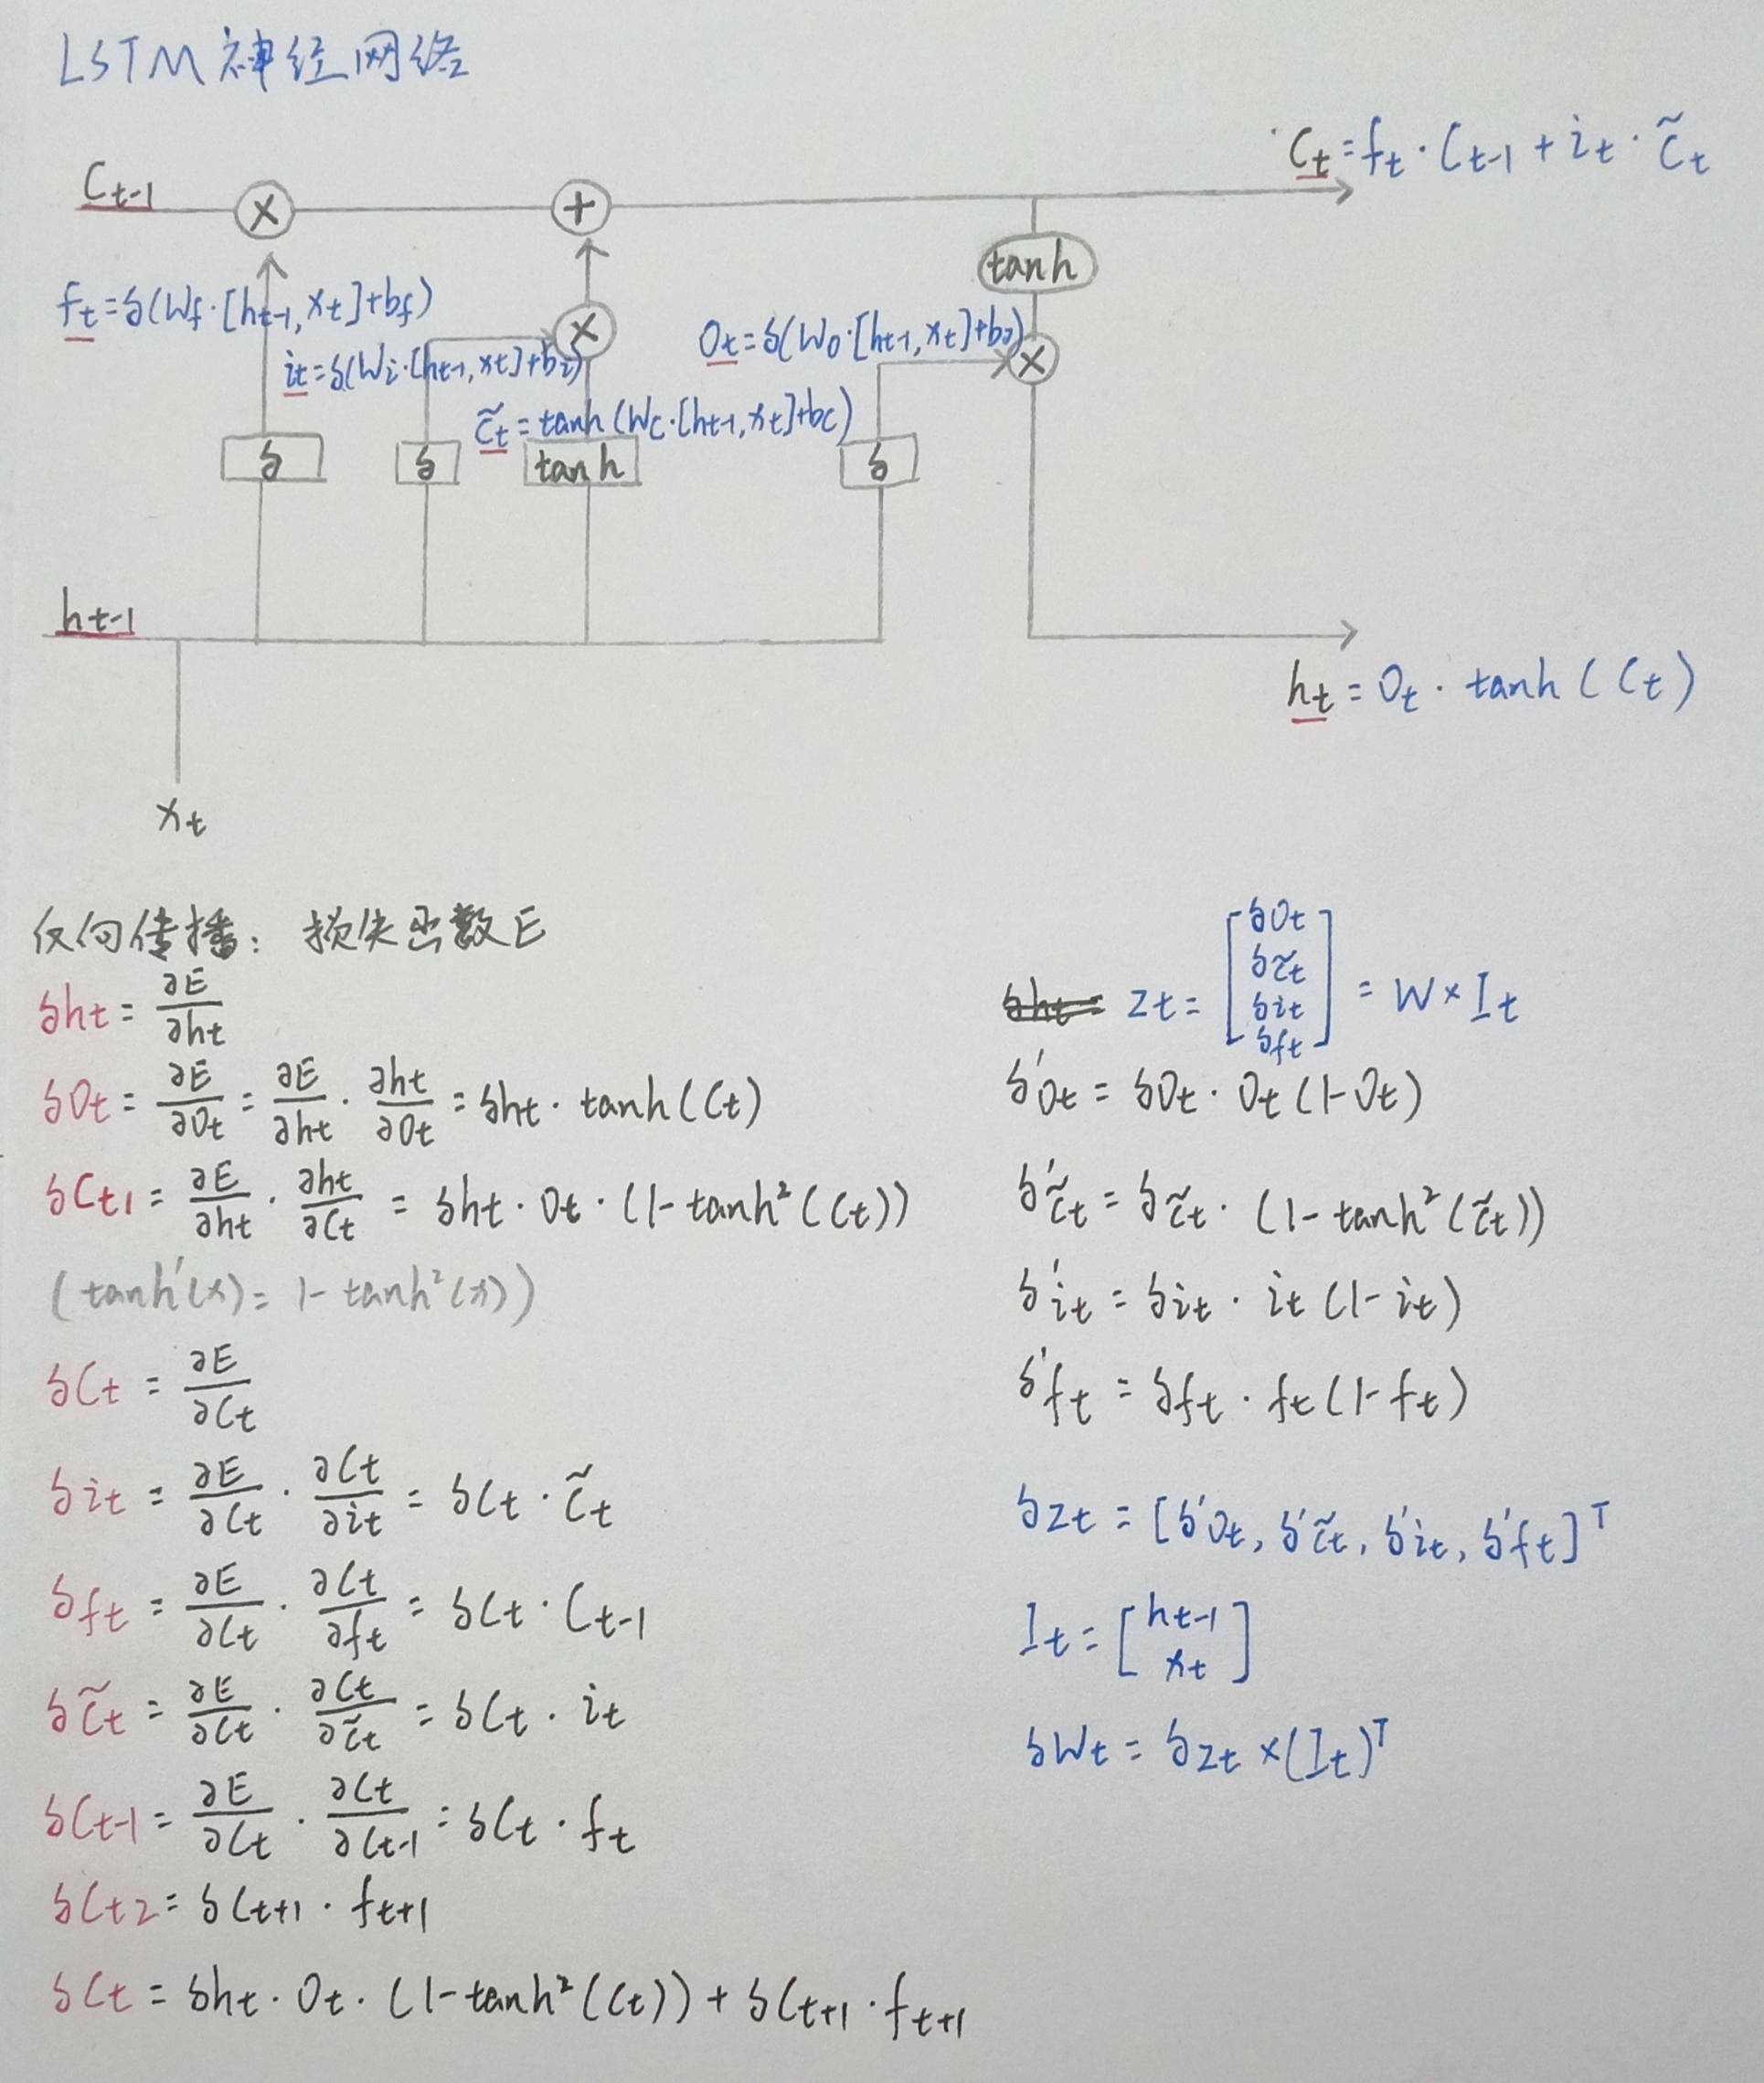 LSTM神经网络
C_{t-1}
× +
C_t = f_t · C_{t-1} + i_t · c̃_t
tanh
f_t = δ(W_f · [h_{t-1}, x_t] + b_f)
×
i_t = δ(W_i · [h_{t-1}, x_t] + b_i)
O_t = δ(W_o · [h_{t-1}, x_t] + b_o)
×
c̃_t = tanh(W_c · [h_{t-1}, x_t] + b_c)
δ δ tanh δ
h_{t-1}
h_t = O_t · tanh(C_t)
x_t
反向传播: 损失函数E
δh_t = ∂E/∂h_t
δO_t = ∂E/∂O_t = ∂E/∂h_t · ∂h_t/∂O_t = δh_t · tanh(C_t)
δC_{t1} = ∂E/∂h_t · ∂h_t/∂C_t = δh_t · O_t · (1 - tanh²(C_t))
(tanh'(x) = 1 - tanh²(x))
δC_t = ∂E/∂C_t
δi_t = ∂E/∂C_t · ∂C_t/∂i_t = δC_t · c̃_t
δf_t = ∂E/∂C_t · ∂C_t/∂f_t = δC_t · C_{t-1}
δc̃_t = ∂E/∂C_t · ∂C_t/∂c̃_t = δC_t · i_t
δC_{t-1} = ∂E/∂C_t · ∂C_t/∂C_{t-1} = δC_t · f_t
δC_{t2} = δC_{t+1} · f_{t+1}
δC_t = δh_t · O_t · (1 - tanh²(C_t)) + δC_{t+1} · f_{t+1}
z_t = [δO_t δc̃_t δi_t δf_t] = W × I_t
δ'O_t = δO_t · O_t (1 - O_t)
δ'c̃_t = δc̃_t · (1 - tanh²(c̃_t))
δ'i_t = δi_t · i_t (1 - i_t)
δ'f_t = δf_t · f_t (1 - f_t)
δz_t = [δ'O_t, δ'c̃_t, δ'i_t, δ'f_t]^T
I_t = [h_{t-1} x_t]
δW_t = δz_t × (I_t)^T